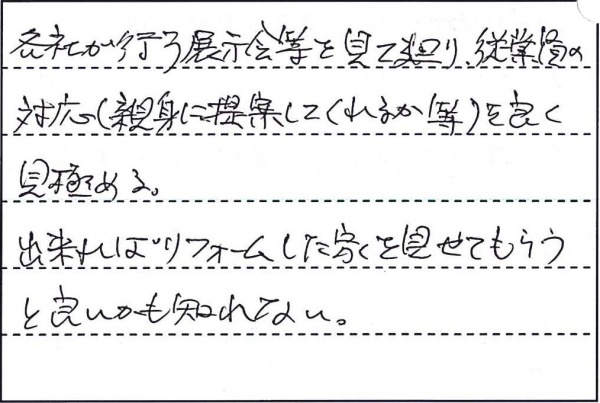 各社が行う展示会等を見て廻り、従業員の
対応(親身に提案してくれるか等)を良く
見極める。
出来ればリフォームした家を見せてもらう
と良いかも知れない。